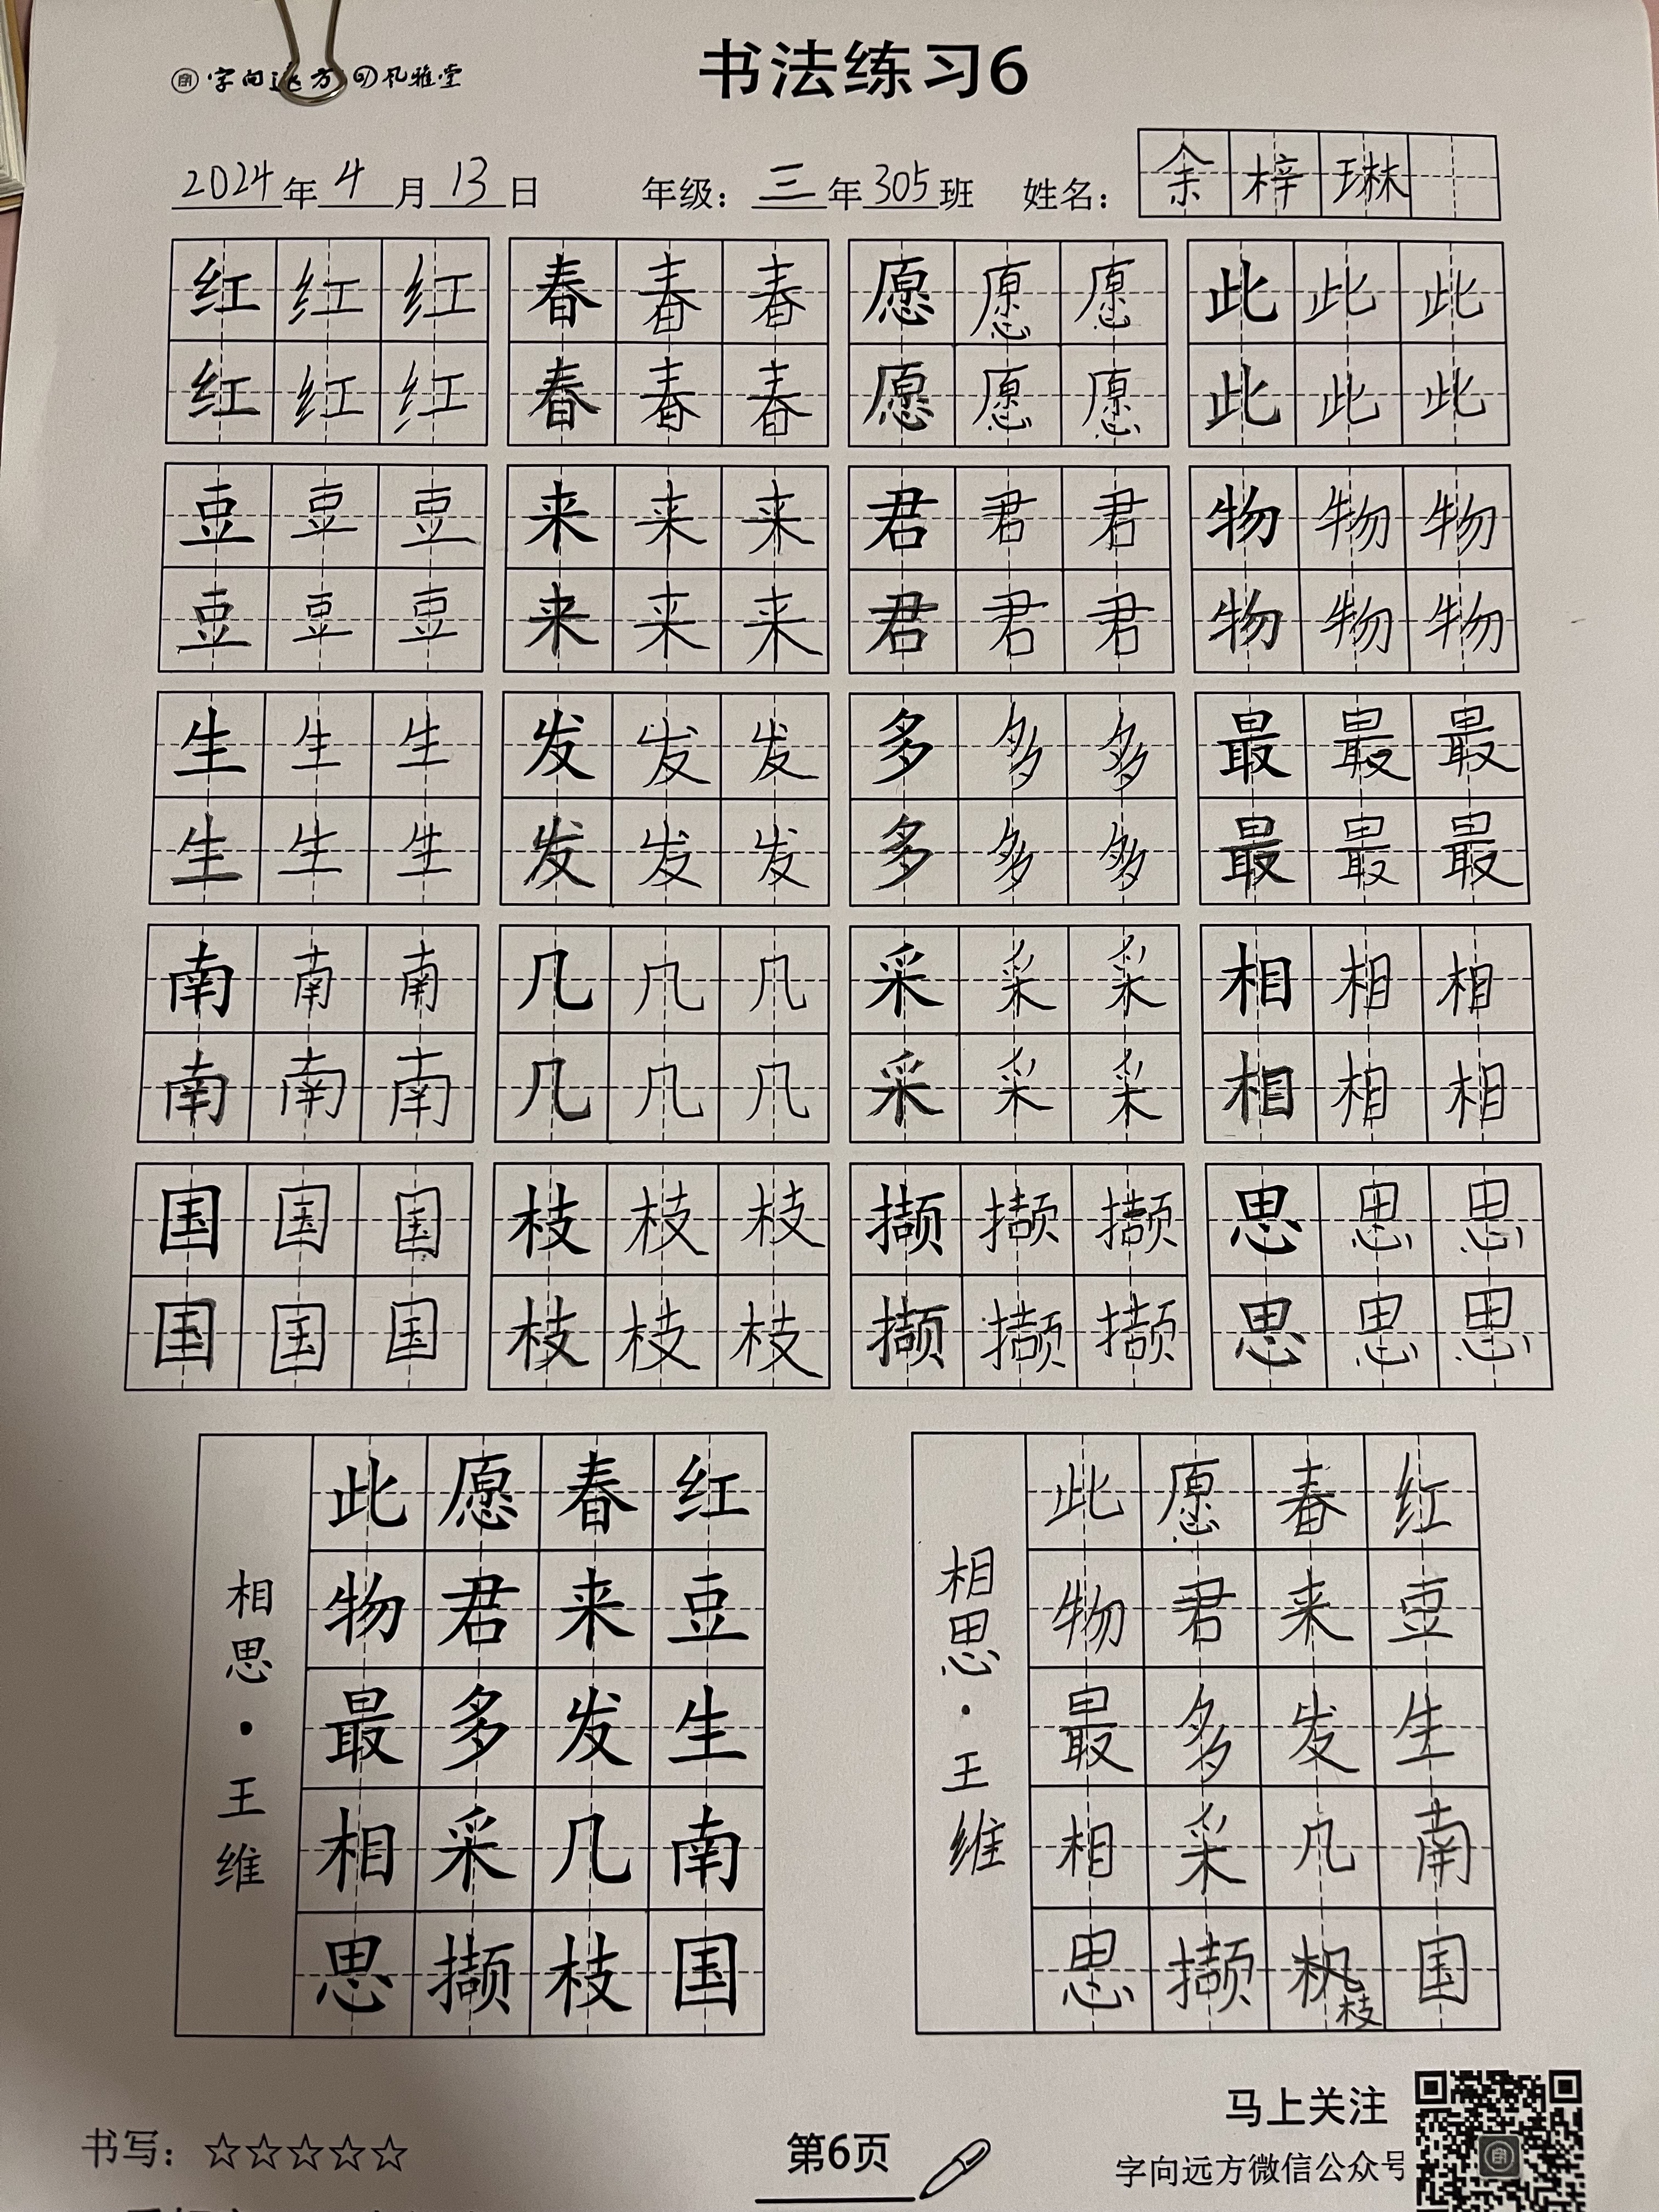 字向远方 风雅堂
书法练习6
2024年4月13日 年级：三年305班 姓名：余梓琳
红红红 春春春 愿愿愿 此此此
红红红 春春春 愿愿愿 此此此
豆豆豆 来来来 君君君 物物物
豆豆豆 来来来 君君君 物物物
生生生 发发发 多多多 最最最
生生生 发发发 多多多 最最最
南南南 几几几 采采采 相相相
南南南 几几几 采采采 相相相
国国国 枝枝枝 撷撷撷 思思思
国国国 枝枝枝 撷撷撷 思思思
红豆生南国
春来发几枝
愿君多采撷
此物最相思
相思·王维
红豆生南国
春来发几枫枝
愿君多采撷
此物最相思
相思·王维
书写：☆☆☆☆☆
第6页
马上关注
字向远方微信公众号